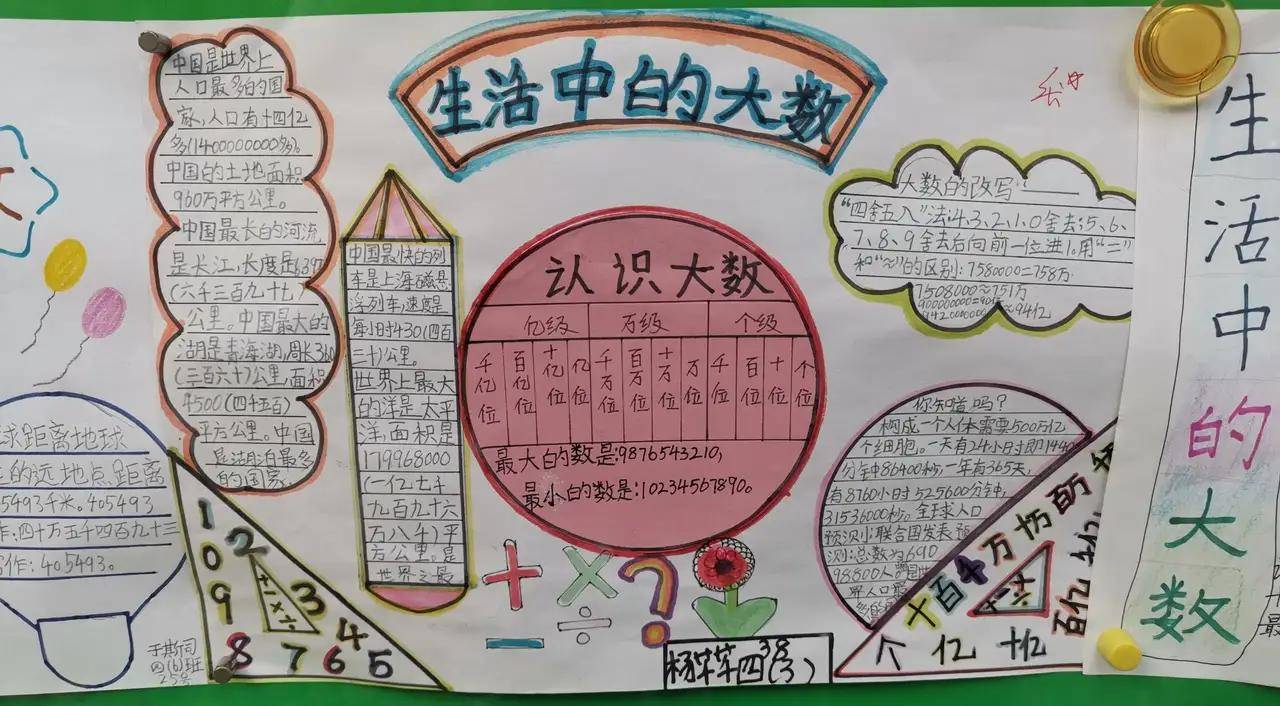 生活中的大数
中国是世界上
人口最多的国
家，人口有十四亿
多(1400000000多)。
中国的土地面积
960万平方公里。
中国最长的河流
是长江，长度是6397
(六千三百九十七)
公里。中国最大的
湖是青海湖，周长360
(三百六十)公里，面积
4500(四千五百)
平方公里。中国
是湖泊最多
的国家
中国最快的列
车是上海磁悬
浮列车，速度是
每小时430(四百
三十)公里。
世界上最大
的洋是太平
洋，面积是
179968000
(一亿七千
九百九十六
万八千)平
方公里。是
世界之最
认识大数
亿级 万级 个级
千亿位 百亿位 十亿位 亿位 千万位 百万位 十万位 万位 千位 百位 十位 个位
最大的数是:9876543210,
最小的数是:10234567890。
大数的改写
“四舍五入”法:4、3、2、1、0舍去;5、6、
7、8、9舍去后向前一位进1。用“=”
和“≈”的区别:7580000=758万
1508000≈151万
≈94亿
你知道吗?
构成一个人体需要500万亿
个细胞。一天有24小时即1440
分钟86400秒,一年有365天,
有8760小时525600分钟,
31536000秒。全球人口
预测小:联合国发表预
测:总数为690
球距离地球
的远地点距离
405493千米。405493
作:四十万五千四百九十三
写作:405493。
1
0
2
9
3
8
7
6
4
5
+-×÷
于斯同
四(6)班
25号
+ × ? - ÷
杨苹苹四(3)
38
个 十 百 千 万 十万 百万
亿 十亿 百亿
+-×÷
生
活
中
的
大
数